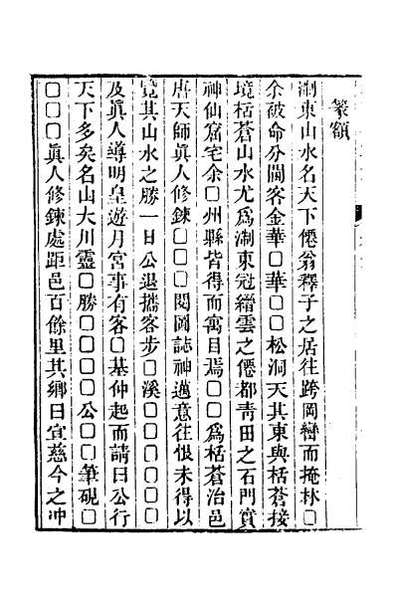 篆額
淛東山水名天下僊翁釋子之居往跨岡巒而掩林□
余被命分閫客金華□華□□松洞天其東與栝蒼接
境栝蒼山水尤爲淛東冠縉雲之僊都靑田之石門實
神仙窟宅余□州縣皆得而寓目焉□□爲栝蒼治邑
唐天師眞人修鍊□□□閱圖誌神邁意往恨未得以
覽其山水之勝一日公退攜客步□溪□□□□□□
及眞人導明皇遊月宮事有客□基仲起而請曰公行
天下多矣名山大川靈□勝□□□□公□□筆硯□
□□□眞人修鍊處距邑百餘里其鄉曰宣慈今之沖